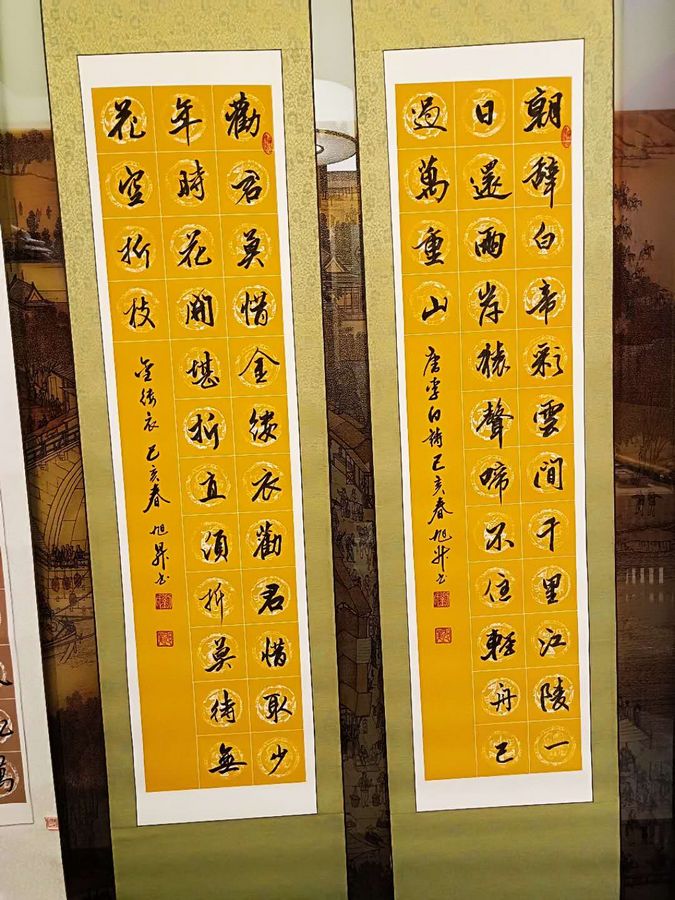 朝辭白帝彩雲間千里江陵一
日還兩岸猿聲啼不住輕舟已
過萬重山
唐李白詩己亥春旭昇書
勸君莫惜金縷衣勸君惜取少
年時花開堪折直須折莫待無
花空折枝
金縷衣 己亥春 旭昇書
萬